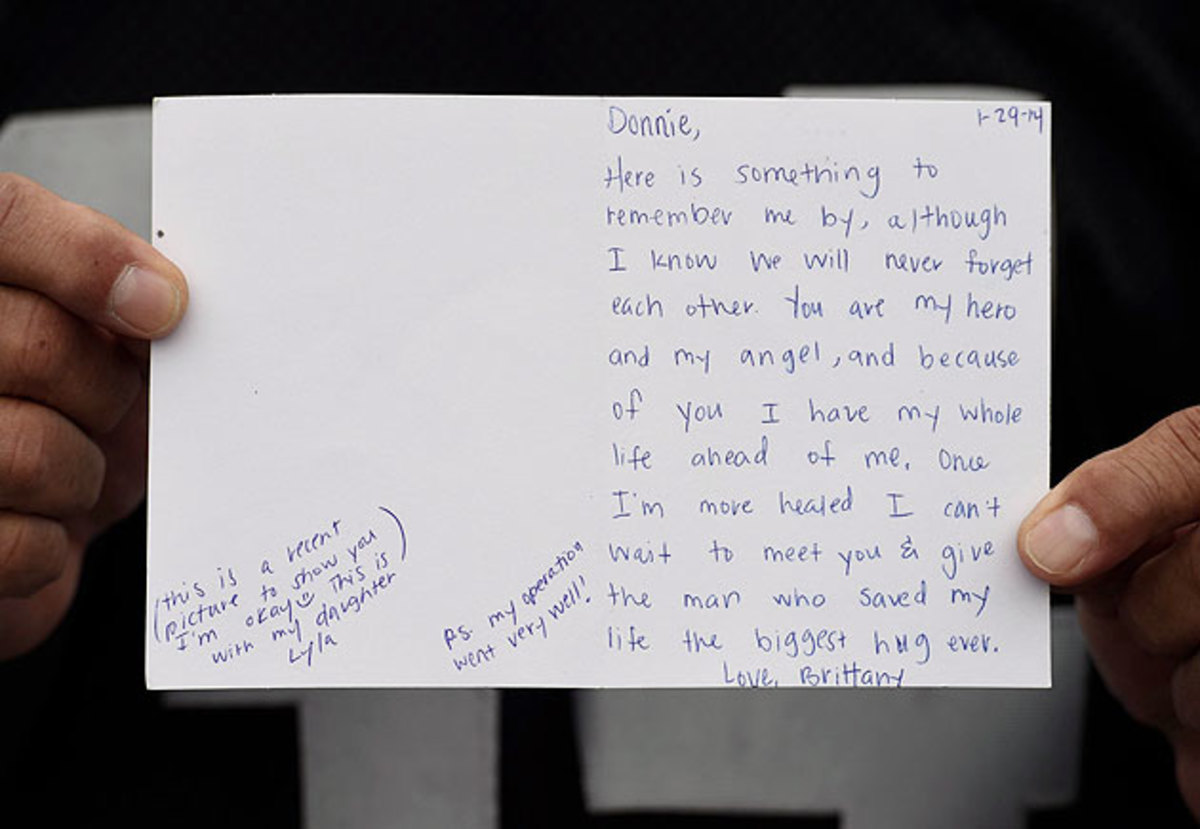 Donnie,
1-29-14
Here is something to
remember me by, although
I know we will never forget
each other. You are my hero
and my angel, and because
of you I have my whole
life ahead of me. Once
I'm more healed I can't
wait to meet you & give
the man who saved my
life the biggest hug ever.
Love, Brittany
(this is a recent
picture to show you
I'm okay☺ This is
with my daughter
Lyla)
P.S. my operation
went very well!